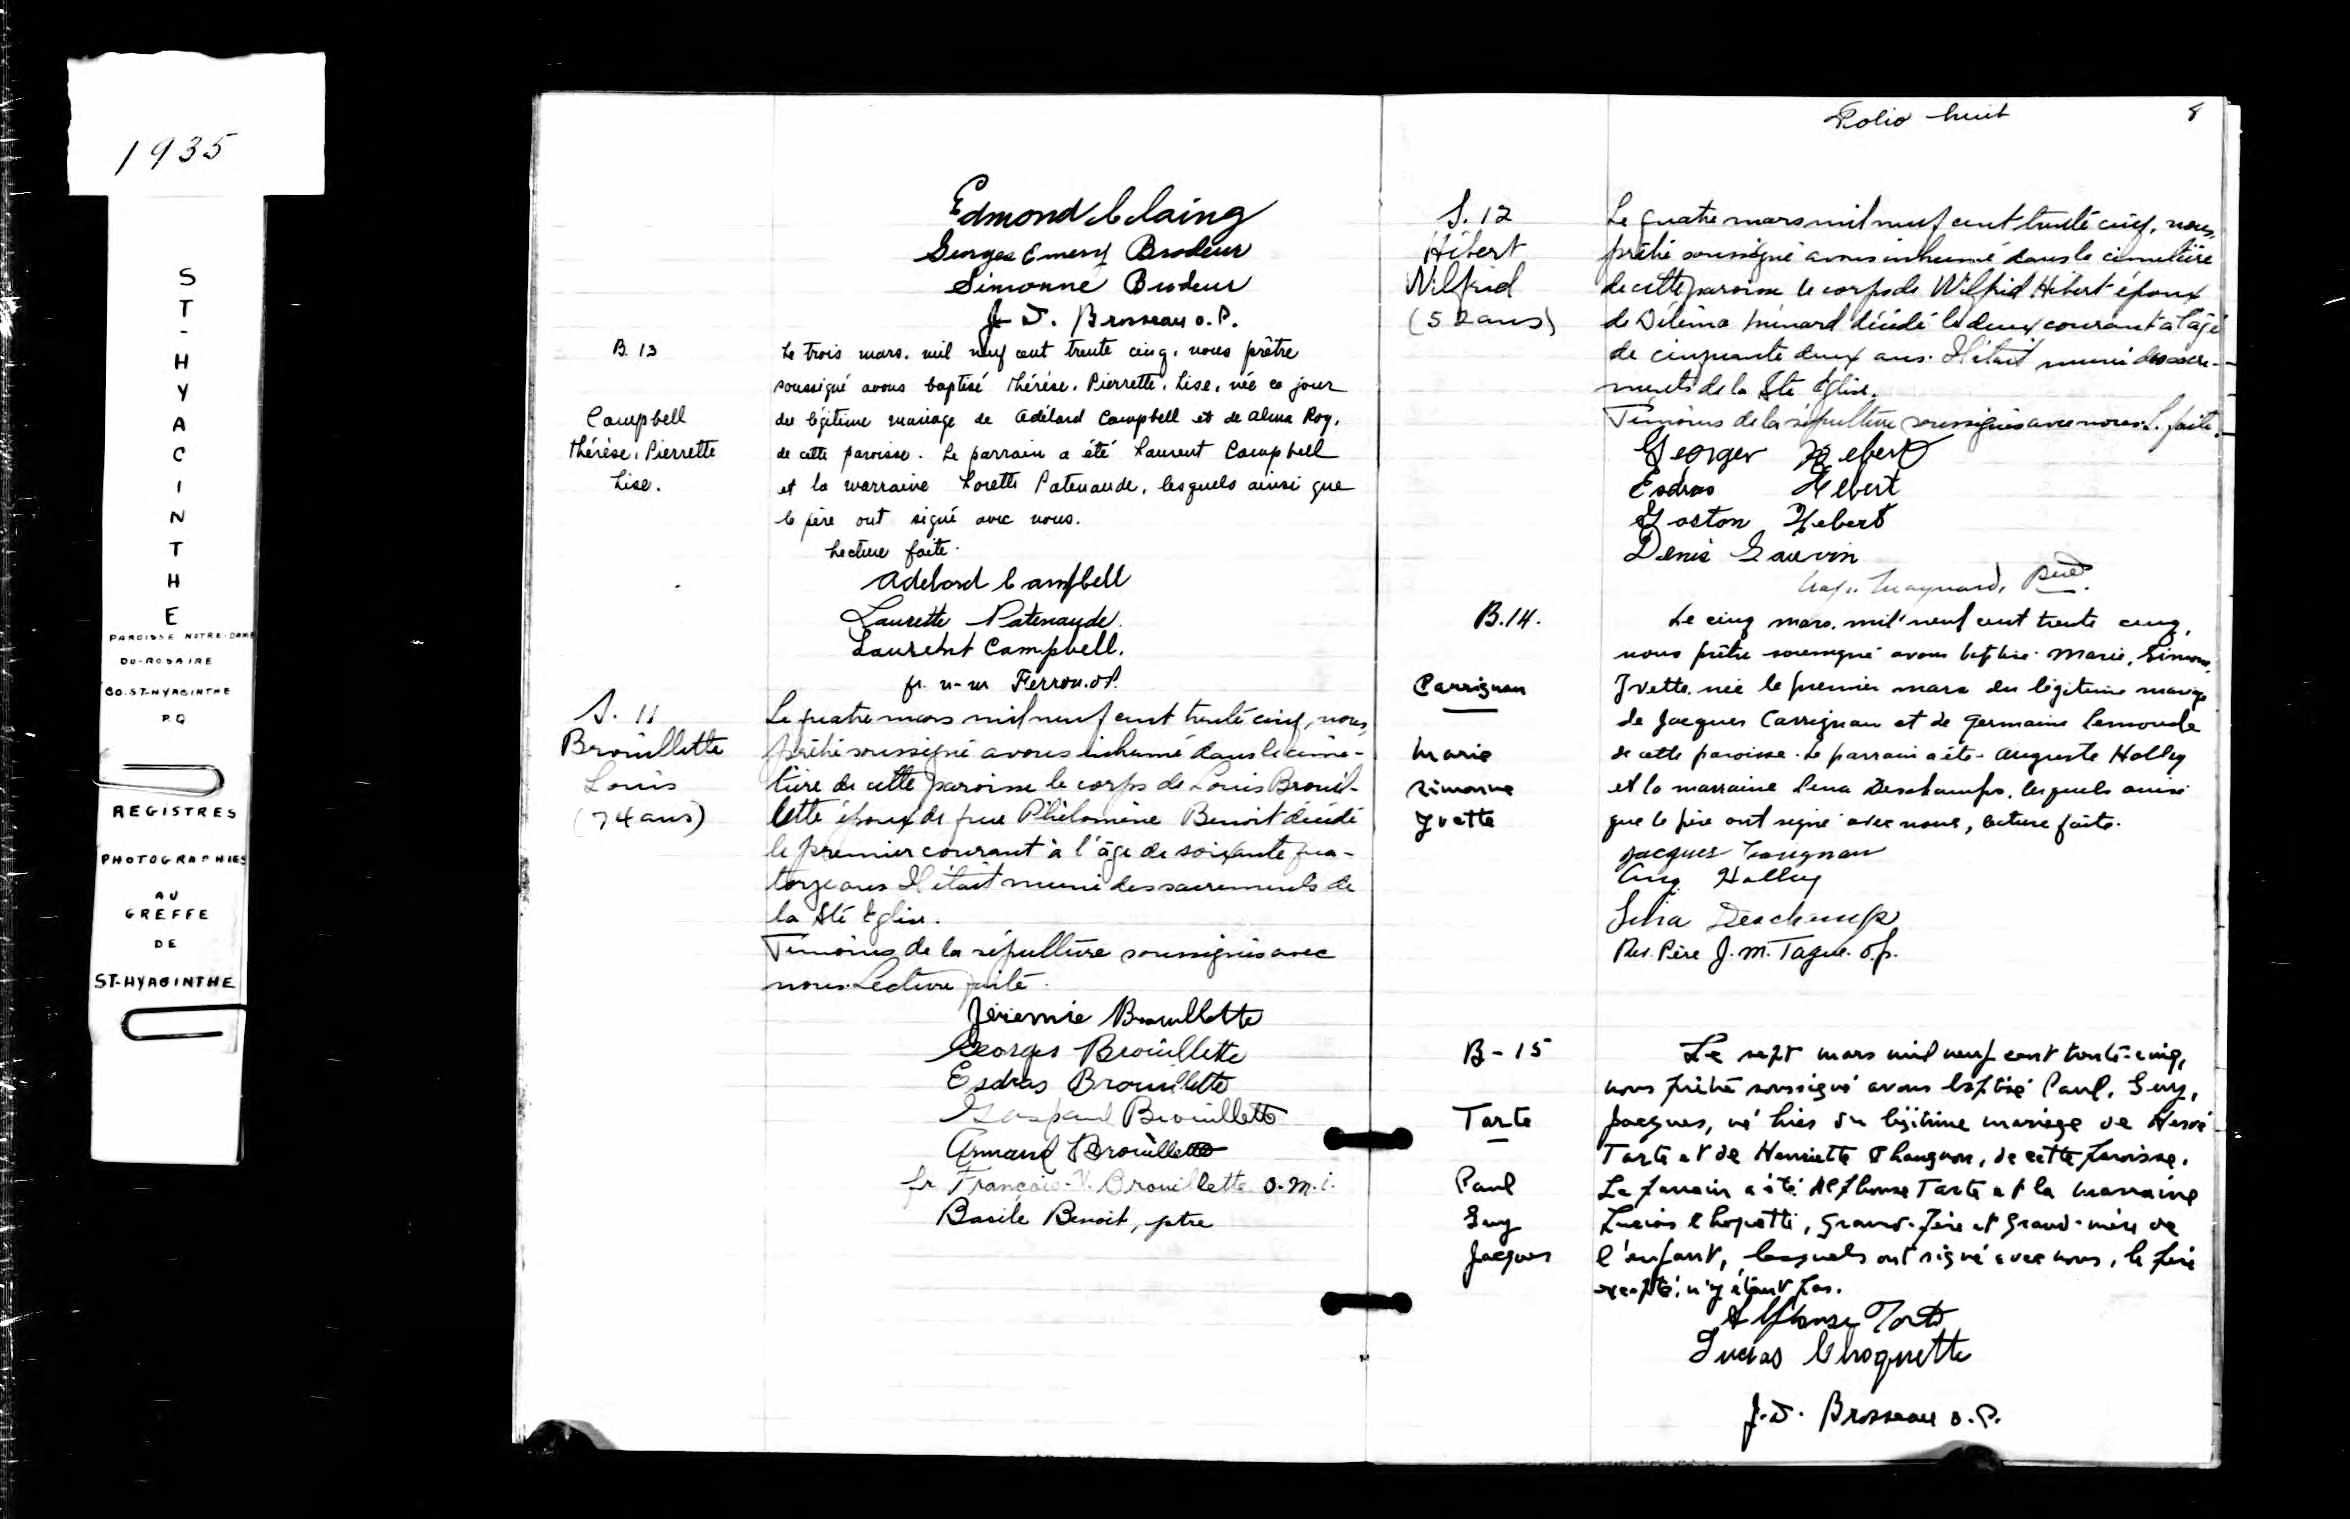 1935
ST-HYACINTHE
PAROISSE NOTRE-DAME
DU-ROSAIRE
CO.ST-HYACINTHE
P.Q
REGISTRES
PHOTOGRAPHIES
AU
GREFFE
DE
ST-HYACINTHE
Edmond
Georges Emery Brodeur
Simonne Brodeur
J. D. Brosseau o.P.
B. 13
Campbell
Thérèse, Pierrette
Lise.
Le trois mars, mil neuf cent trente cinq, nous prêtre
soussigné avons baptisé Thérèse, Pierrette, Lise, née ce jour
du légitime mariage de Adélard Campbell et de Alma Roy,
de cette paroisse. Le parrain a été Laurent Campbell
et la marraine Lorette Patenaude, lesquels ainsi que
le père ont signé avec nous.
Lecture faite.
Adelard Campbell
Laurette Patenaude.
Laurent Campbell.
fr. n-m Ferron. o.P.
S. 11
Brouillette
Louis
(74 ans)
Le quatre mars mil neuf cent trente cinq, nous,
prêtre soussigné avons inhumé dans le cime-
tière de cette paroisse le corps de Louis Brouil-
lette époux de feue Philomène Benoit décédé
le premier courant à l'âge de soixante qua-
torze ans Il était muni des sacrements de
la Ste Eglise.
Témoins de la sépulture soussignés avec
nous. Lecture faite.
Jérémie Brouillette
Georges Brouillette
Esdras Brouillette
Gaspard Brouillette
Armand Brouillette
fr François-X. Brouillette o.m.i.
Basile Benoit, ptre
Folio huit 8
S. 12
Hébert
Wilfrid
(52 ans)
Le quatre mars mil neuf cent trente cinq, nous,
prêtre soussigné avons inhumé dans le cimetière
de cette paroisse le corps de Wilfrid Hébert époux
de Délima Ménard décédé le deux courant à l'âge
de cinquante deux ans. Il était muni des sacre-
ments de la Ste Eglise.
Témoins de la sépulture soussignés avec nous. L. faite.
Georges Hebert
Esdras Hebert
Gaston Hebert
Denis Gauvin
B.14.
Carrignan
Marie
Simonne
Yvette
Le cinq mars, mil neuf cent trente cinq,
nous prêtre soussigné avons baptisé Marie, Simone,
Yvette née le premier mars du légitime mariage
de Jacques Carrignan et de Germaine Lemonde
de cette paroisse. Le parrain a été Auguste Holley
et la marraine Lena Deschamps, lesquels ainsi
que le père ont signé avec nous, lecture faite.
Jacques Carignan
Aug Holley
Deschamps
Rev. Père J. M. Tague. o.p.
B-15
Tarte
Paul
Guy
Jacques
Le sept mars mil neuf cent trente-cinq,
nous prêtre soussigné avons baptisé Paul, Guy,
Jacques, né hier du légitime mariage de Hervé
Tarte et de Henriette Phaneuf, de cette paroisse.
Le parrain a été Alphonse Tarte et la marraine
Lucias Choquette, grand-père et grand-mère de
l'enfant, lesquels ont signé avec nous, le père
excepté, n'y étant pas.
Alphonse Tarte
Lucias Choquette
J. D. Brosseau o.P.